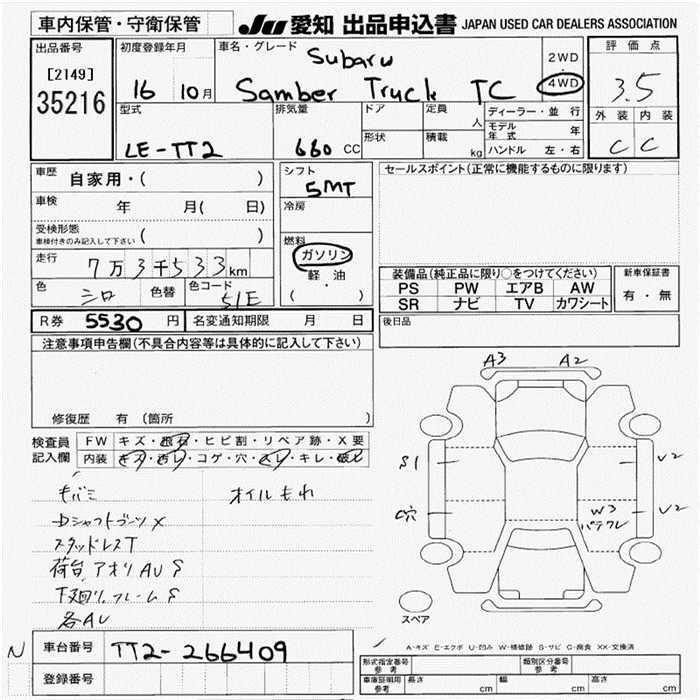 車内保管・守衛保管
JU 愛知 出品申込書 JAPAN USED CAR DEALERS ASSOCIATION
出品番号
[2149]
35216
初度登録年月
16 10月
車名・グレード
Subaru
Samber Truck TC
2WD
・
4WD
評価点
3.5
外装 内装
C C
型式
LE-TT2
排気量
660 CC
ドア
定員
人
形状
積載
kg
ディーラー・並行
モデル年式 年
ハンドル 左・右
車歴 自家用・( )
車検 年 月( 日)
受検形態
車検付きのみ記入して下さい ( )
走行 7万3千533km
色 シロ 色替 色コード 51E
シフト
5MT
冷房
燃料
ガソリン
軽油
・
( )
セールスポイント(正常に機能するものに限ります)
装備品(純正品に限り○をつけてください)
PS PW エアB AW
SR ナビ TV カワシート
新車保証書
有・無
R券 5530 円 名変通知期限 月 日
後日品
注意事項申告欄(不具合内容等は具体的に記入して下さい)
修復歴 有 (箇所 )
検査員
記入欄
FW キズ・飛石・ヒビ割・リペア跡・X要
内装 キズ・汚レ・コゲ・穴・スレ・キレ・破レ
オイルもれ
Dシャフトブーツ X
スタッドレスT
荷台、アオリAU S
下廻り、フレームS
各AU
A3 A2
S1 V2
穴 W3 V2
スペア
A-キズ E-エクボ U-凹み W-補修跡 S-サビ C-腐食 XX-交換済
N
車台番号 TT2-266409
登録番号
形式指定番号
参考
類別区分番号
参考
車庫証明用
参考
長さ cm 幅 cm 高さ cm